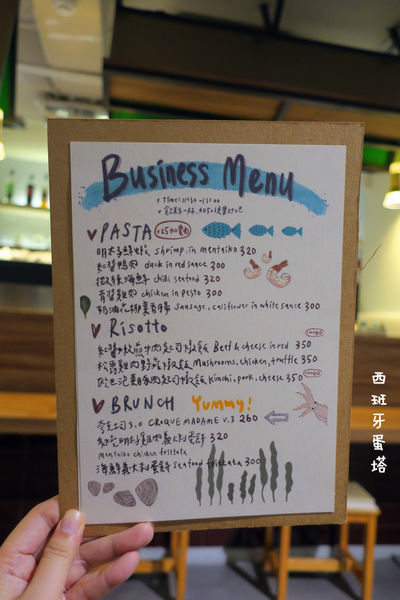 Business Menu
PASTA
明太子鮮蝦 shrimp in mentaiko 320
紅醬鴨肉 duck in red sauce 300
微辣海鮮 chili seafood 320
青醬雞肉 chicken in pesto 300
奶油花椰菜香腸 sausage, califlower in white sauce 300
Risotto
牛肉起司燉飯 Beef & cheese in red 350
松露雞肉野菇燉飯 Mushrooms, chicken, truffle 350
泡菜豬肉起司燉飯 Kimchi, pork, cheese 350
BRUNCH Yummy!
3.0 CROQUE MADAME V.3 260
明太子雞肉義大利蛋餅 320
Mentaiko chicken frittata
海鮮義大利蛋餅 seafood frittata 300
西班牙蛋塔